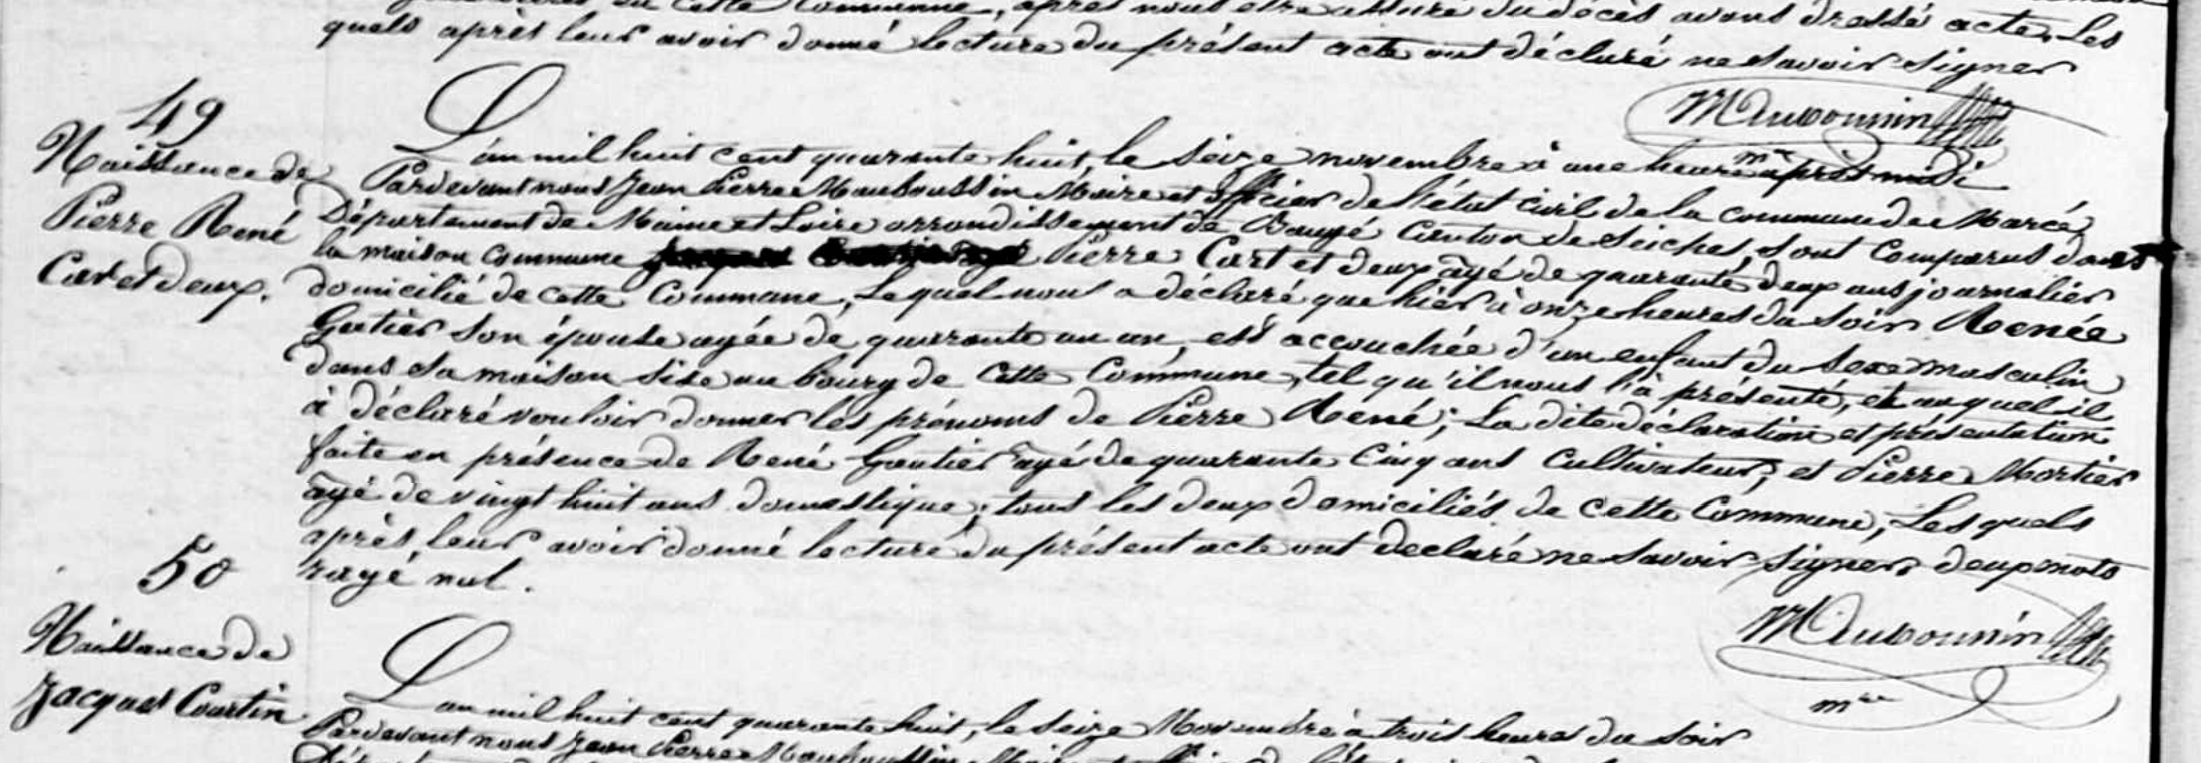 cette Commune, après nous être assuré du décès avons dressé acte, Les
quels après leur avoir donné lecture du présent acte ont déclaré ne Savoir Signer
49
Naissance de
Pierre René
Cart et deux.
L'an mil huit cent quarante huit, le Seize novembre à une heure après midi
Pardevant nous Jean Pierre Mauboussin Maire et officier de l'état civil de la commune de Marcé
Département de Maine et Loire arrondissement de Baugé Canton de Seiches, Sont Comparus dans
la maison Commune Pierre Cart et deux âgé de quarante deux ans journalier
domicilié de cette Commune, Lequel nous a déclaré que hier à onze heures du Soir Renée
Gautier Son épouse agée de quarante un an, est accouchée d'un enfant du Sexe masculin
dans Sa maison Sise au bourg de Cette Commune, tel qu'il nous l'à présenté, et auquel il
à déclaré vouloir donner les prénoms de Pierre René; La dite déclaration et présentation
faite en présence de René Gautier âgé de quarante Cinq ans Cultivateur, et Pierre Mortier
âgé de vingt huit ans domestique; tous les deux domiciliés de cette Commune, Les quels
après leur avoir donné lecture du présent acte ont declaré ne Savoir Signer, deux mots
rayé nul.
mre
50
Naissance de
Jacques Courtin
L'an mil huit cent quarante huit, le Seize Novembre à trois heures du Soir
Pardevant nous Jean Pierre Mauboussin